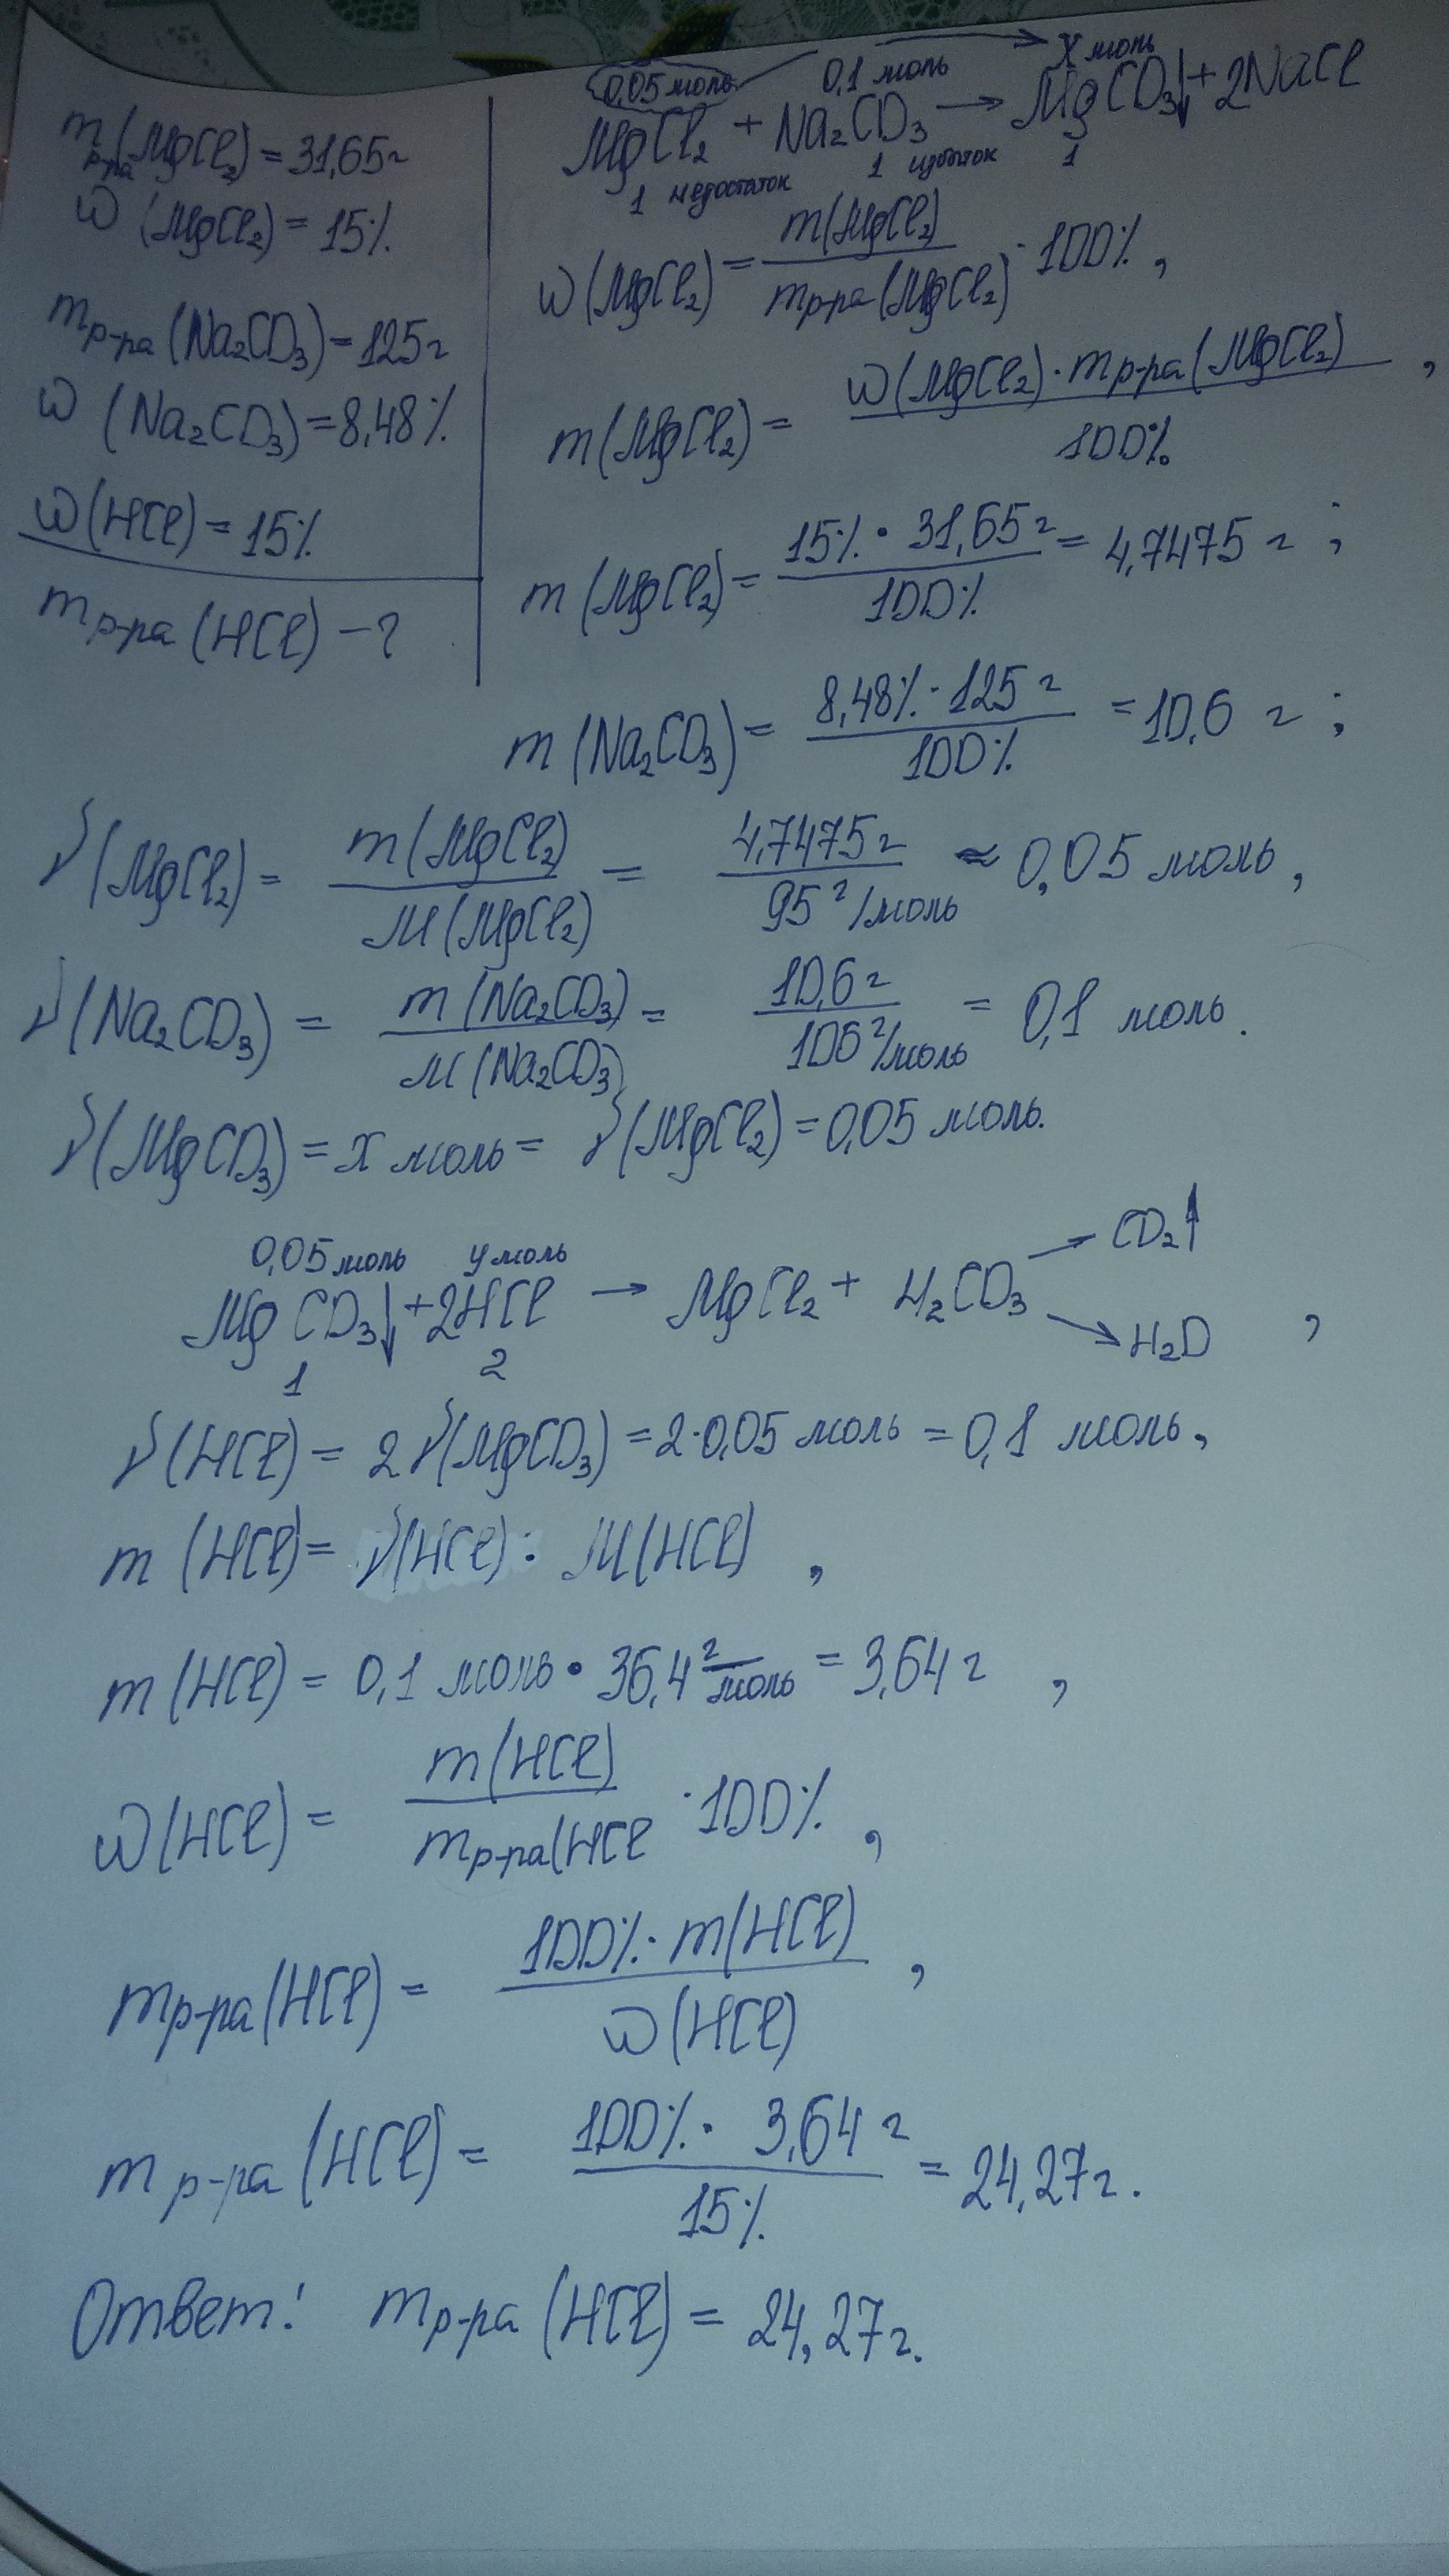 m р-ра (MgCl₂) = 31,65 г
ω (MgCl₂) = 15%
m р-ра (Na₂CO₃) = 125 г
ω (Na₂CO₃) = 8,48%
ω (HCl) = 15%
m р-ра (HCl) – ?
0,05 моль 0,1 моль х моль
MgCl₂ + Na₂CO₃ → MgCO₃↓ + 2NaCl
1 недостаток 1 избыток 1
ω (MgCl₂) = m(MgCl₂) / m р-ра (MgCl₂) · 100%,
m (MgCl₂) = ω (MgCl₂) · m р-ра (MgCl₂) / 100%,
m (MgCl₂) = 15% · 31,65 г / 100% = 4,7475 г;
m (Na₂CO₃) = 8,48% · 125 г / 100% = 10,6 г;
ν (MgCl₂) = m (MgCl₂) / M (MgCl₂) = 4,7475 г / 95 г/моль ≈ 0,05 моль,
ν (Na₂CO₃) = m (Na₂CO₃) / M (Na₂CO₃) = 10,6 г / 106 г/моль = 0,1 моль.
ν (MgCO₃) = х моль = ν (MgCl₂) = 0,05 моль.
0,05 моль у моль
MgCO₃↓ + 2HCl → MgCl₂ + H₂CO₃ → CO₂↑ → H₂O,
1 2
ν (HCl) = 2 ν (MgCO₃) = 2 · 0,05 моль = 0,1 моль,
m (HCl) = ν (HCl) · M (HCl),
m (HCl) = 0,1 моль · 36,4 г/моль = 3,64 г,
ω (HCl) = m (HCl) / m р-ра (HCl · 100%,
m р-ра (HCl) = 100% · m (HCl) / ω (HCl),
m р-ра (HCl) = 100% · 3,64 г / 15% = 24,27 г.
Ответ: m р-ра (HCl) = 24,27 г.